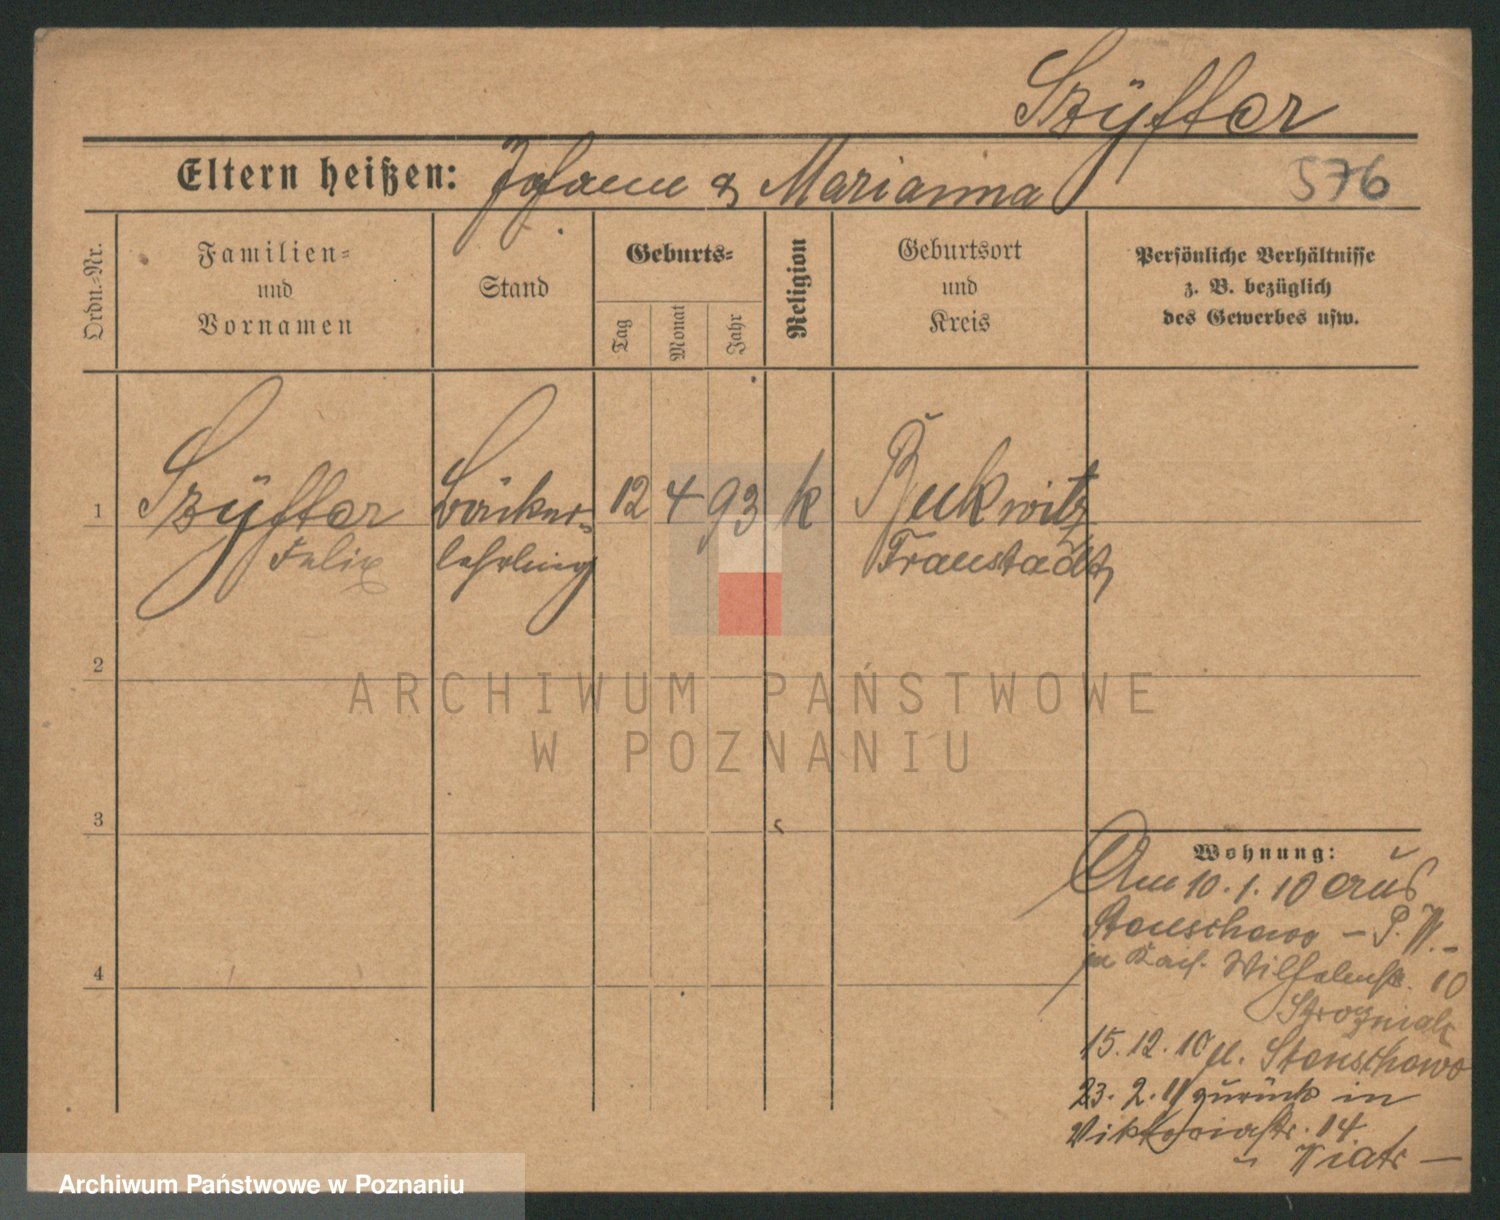 Szÿffer
Eltern heißen: Johann & Marianna
576
Ordn.-Nr.
Familien-
und
Vornamen
Stand
Geburts-
Tag
Monat
Jahr
Religion
Geburtsort
und
Kreis
Persönliche Verhältnisse
z. B. bezüglich
des Gewerbes usw.
1 Szÿffer Bäcker- 12 4 93 k Bukwitz
Felix lehrling Fraustadt
2
3
4
Wohnung:
Am 10.1.10 aus
Stanschewo - P. W. -
in Kais. Wilhelmstr. 10
15.12.10 n. Stanschewo
23.2.11 zurück in
Viktoriastr. 14
Wiatr -
ARCHIWUM PAŃSTWOWE
W POZNANIU
Archiwum Państwowe w Poznaniu